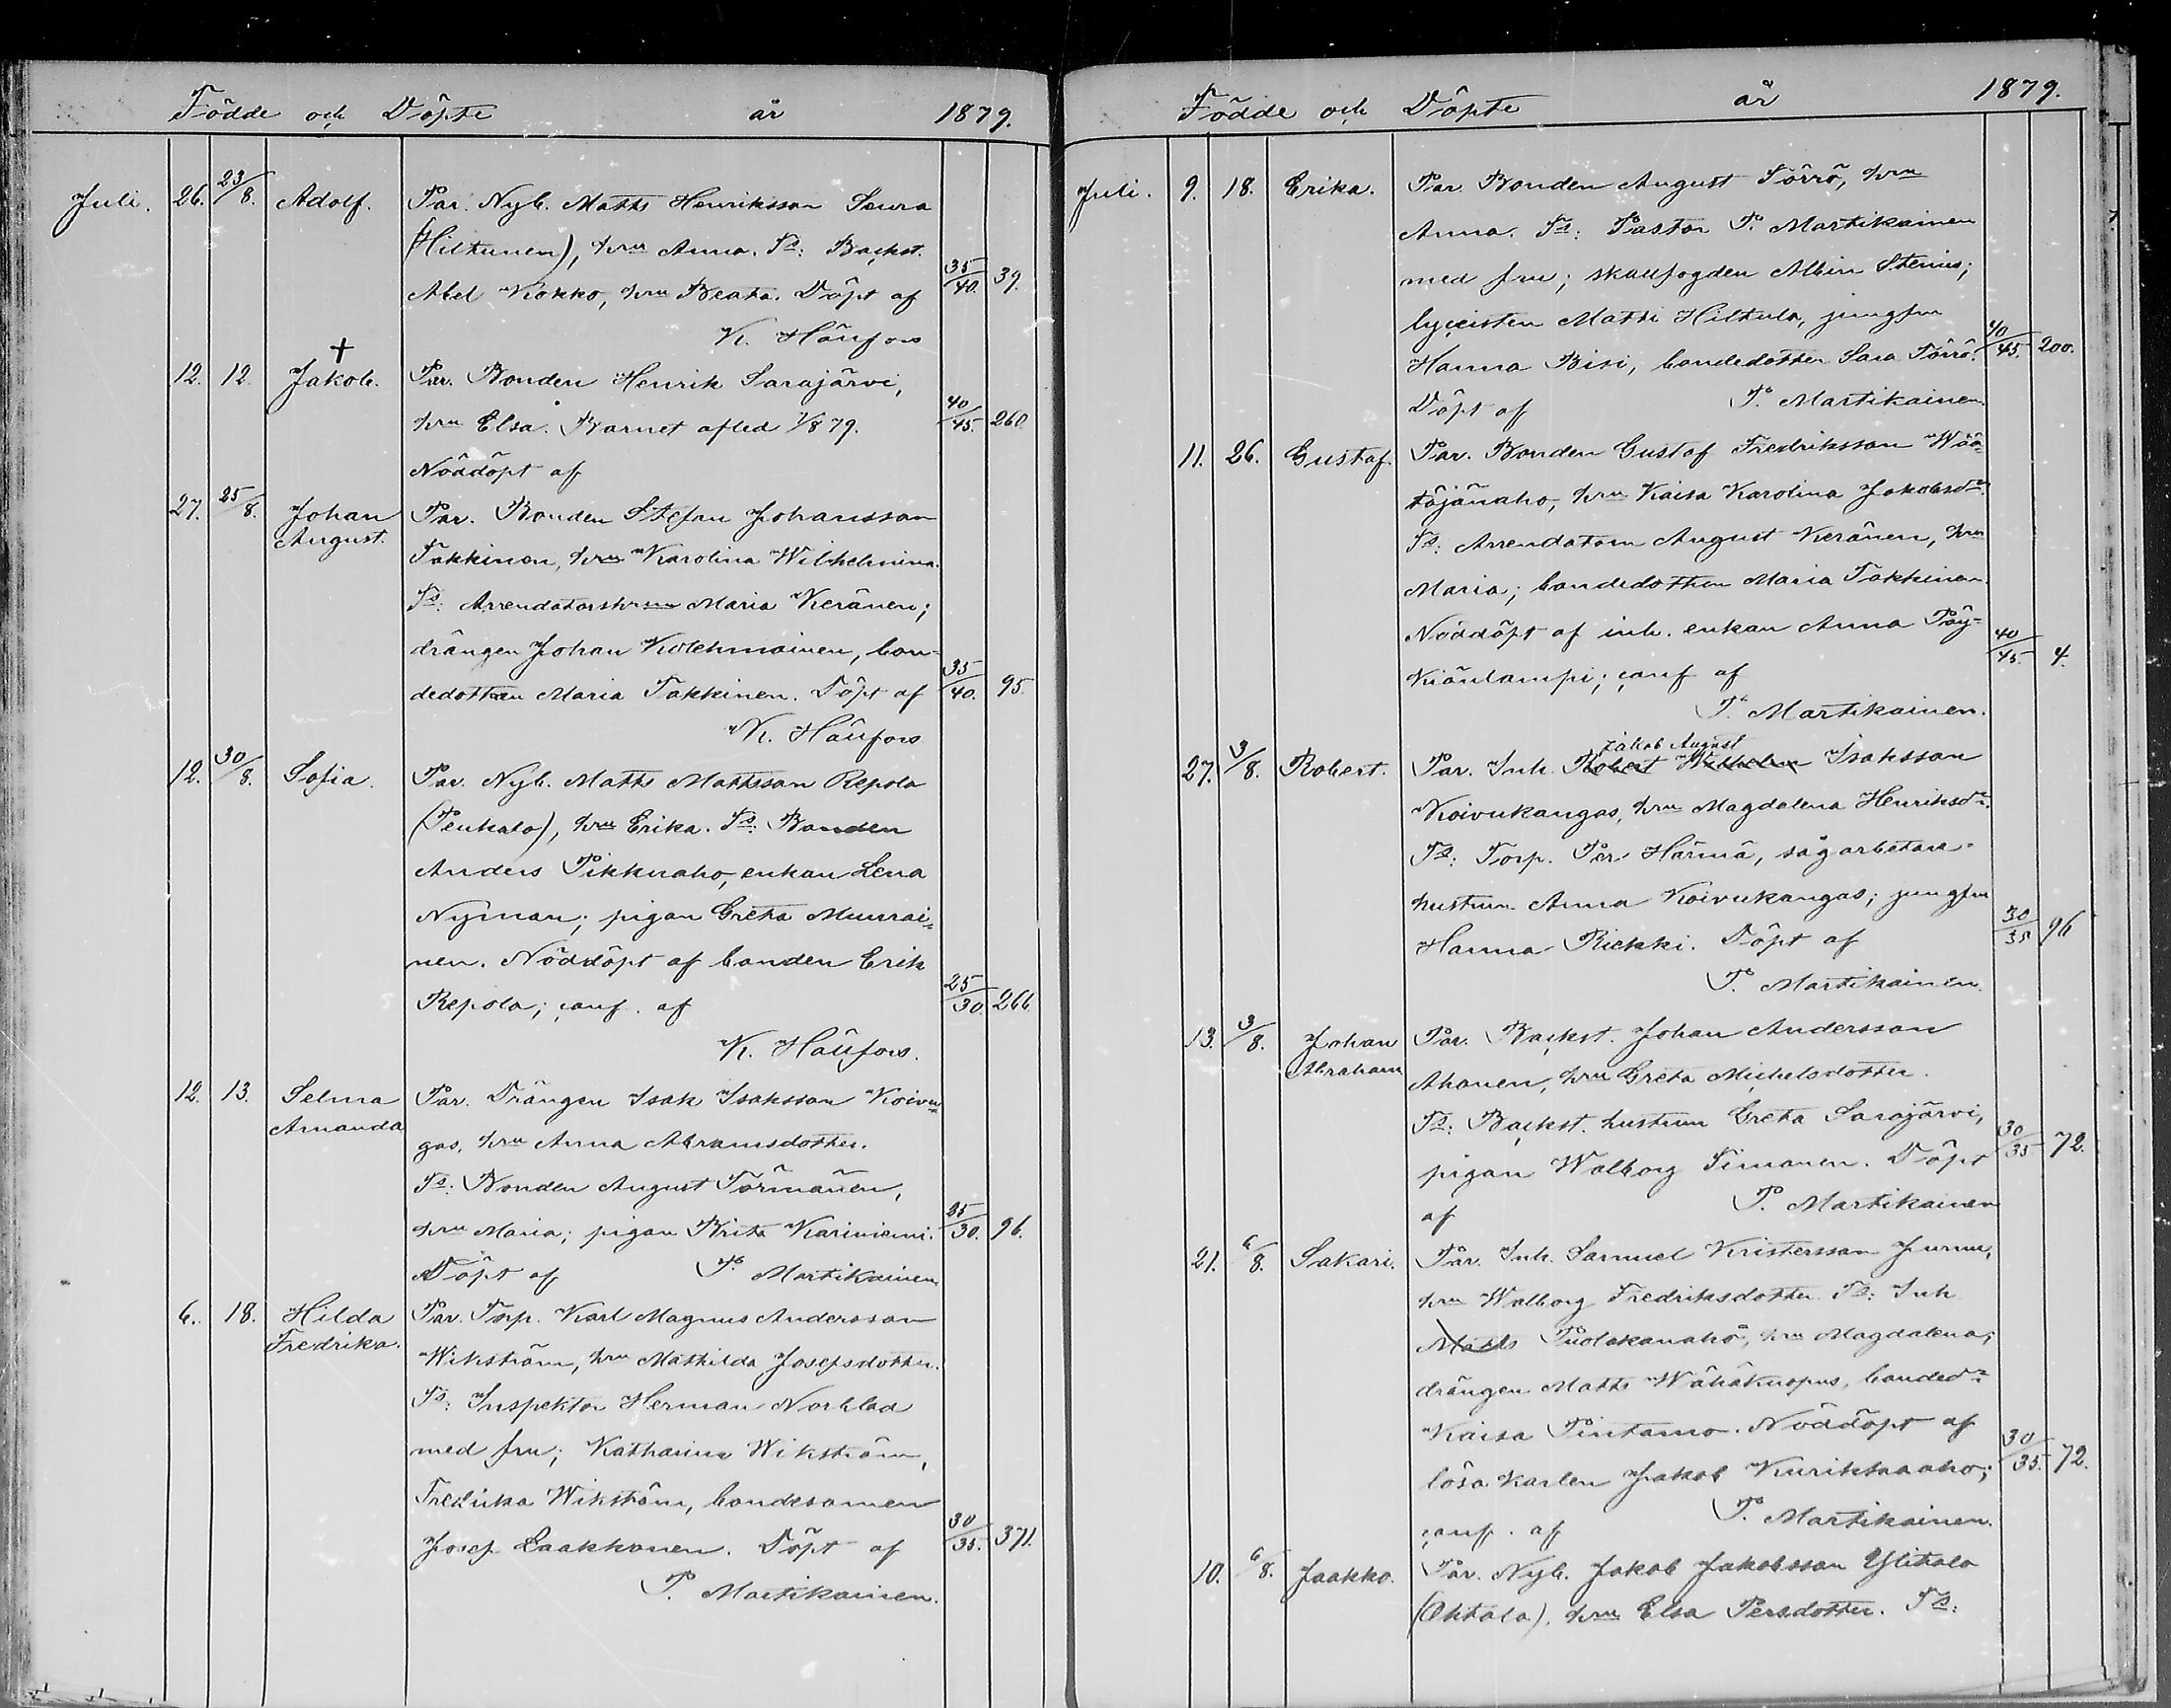 Födde och Döpte år 1879.
Juli. 26. 23/8. Adolf. Par. Nyb. Matts Henriksson Seura
(Hiltunen), hru Anna. Ts: Backst.
Abel Kokko, hru Beata. Döpt af 35/40. 39.
K. Häufors
12. 12. † Jakob. Par. Bonden Henrik Sarajärvi,
hru Elsa. Barnet afled 1/8 79. 40/45. 260.
Nöddöpt af
27. 25/8. Johan Par. Bonden Stefan Johansson
August. Takkinen, hru Karolina Wilhelmina.
Ts: Arrendatorshru Maria Keränen;
drängen Johan Kolehmainen, bon-
dedottren Maria Takkinen. Döpt af 35/40. 95.
K. Häufors
12. 30/8. Sofia. Par. Nyb. Matts Mattsson Repola
(Penkala), hru Erika. Ts: Bonden
Anders Pikkuaho, enkan Lena
Nyman; pigan Greta Murrai-
nen. Nöddöpt af bonden Erik
Repola; conf. af 25/30. 266.
K. Häufors.
12. 13. Selma Par. Drängen Isak Isaksson Koivu-
Amanda gas, hru Anna Abramsdotter.
Ts: Bonden August Törmänen,
hru Maria; pigan Brita Kariniemi. 25/30. 96.
Döpt af P. Martikainen
6. 18. Hilda Par. Torp. Karl Magnus Andersson
Fredrika. Wikström, hru Mathilda Josefsdotter.
Ts: Inspektor Herman Norblad
med fru; Katharina Wikström,
Fredrika Wikström, bondesonen
Josef Laakkonen. Döpt af 30/35. 371.
P. Martikainen.
Födde och Döpte år 1879.
Juli. 9. 18. Erika. Par. Bonden August Törrö, hru
Anna. Ts: Pastor P. Martikainen
med fru; skallfogden Albin Stenius;
lyceisten Matti Hiltula, jungfru
Hanna Bisi, bondedotter Sara Törrö. 40/45. 200.
Döpt af P. Martikainen.
11. 26. Gustaf. Par. Bonden Gustaf Fredriksson Wää-
täjänaho, hru Kaisa Karolina Jakobsdr.
Ts: Arrendatorn August Keränen, hru
Maria; bondedottren Maria Takkinen.
Nöddöpt af inh. enkan Anna Pöy-
kiönlampi; conf af 40/45. 4.
P. Martikainen.
Jakob August
27. 3/8. Robert. Par. Inh. Robert Wilhelm Isaksson
Koivukangas, hru Magdalena Henriksdr.
Ts: Torp. Per Härmä, sågarbetare-
hustrun Anna Koivukangas; jungfru
Hanna Riekki. Döpt af 30/35 96
P. Martikainen.
13. 3/8. Johan Par. Backst. Johan Andersson
Abraham Ahonen, hru Greta Michelsdotter.
Ts: Backst. hustrun Greta Sarajärvi,
pigan Walborg Simonen. Döpt 30/35 72.
af P. Martikainen
21. 6/8. Sakari. Par. Inh. Samuel Kristersson Jurmu,
hru Walborg Fredriksdotter. Ts: Inh
Matts Puolakanaho, hru Magdalena;
drängen Matts Wähäkuopus, bondedr
Kaisa Pintamo. Nöddöpt af
lösa karlen Jakob Kurikkaaho; 30/35. 72.
conf. af P. Martikainen.
10. 6/8. Jaakko. Par. Nyb. Jakob Jakobsson Ylitalo
(Ohtala), hru Elsa Persdotter. Ts: